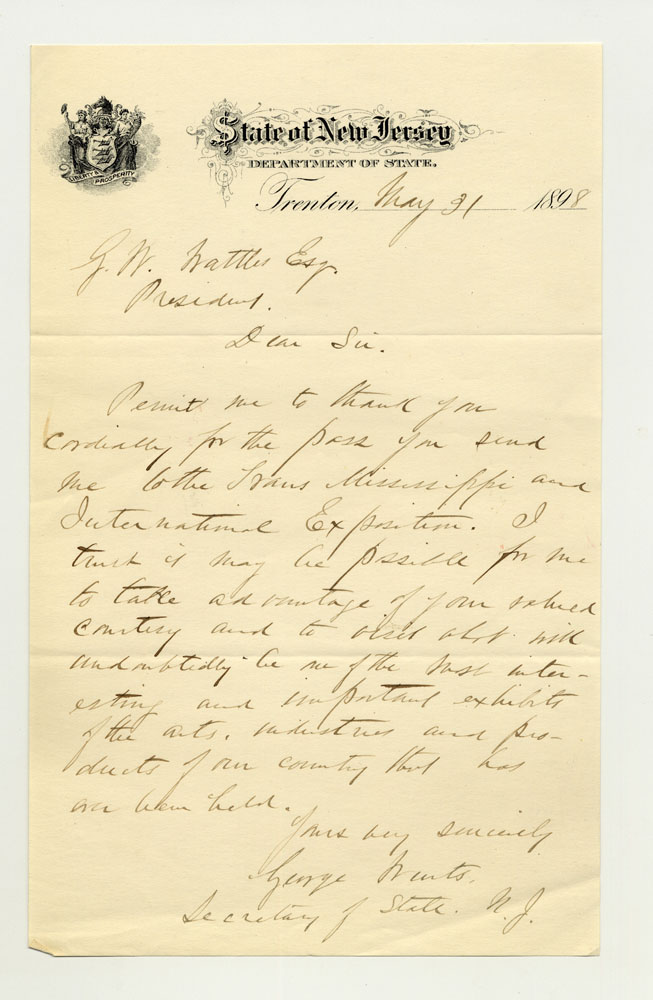 LIBERTY & PROSPERITY
State of New Jersey
DEPARTMENT OF STATE.
Trenton, May 31 1898
G. W. Wattles Esq.
President.
Dear Sir.
Permit me to thank you
cordially for the pass you send
me to the Trans Mississippi and
International Exposition. I
trust it may be possible for me
to take advantage of your valued
courtesy and to visit what will
undoubtedly be one of the most inter-
esting and important exhibits
of the arts, industries and pro-
ducts of our country that has
ever been held.
Yours very sincerely
George Wurts.
Secretary of State. N. J.